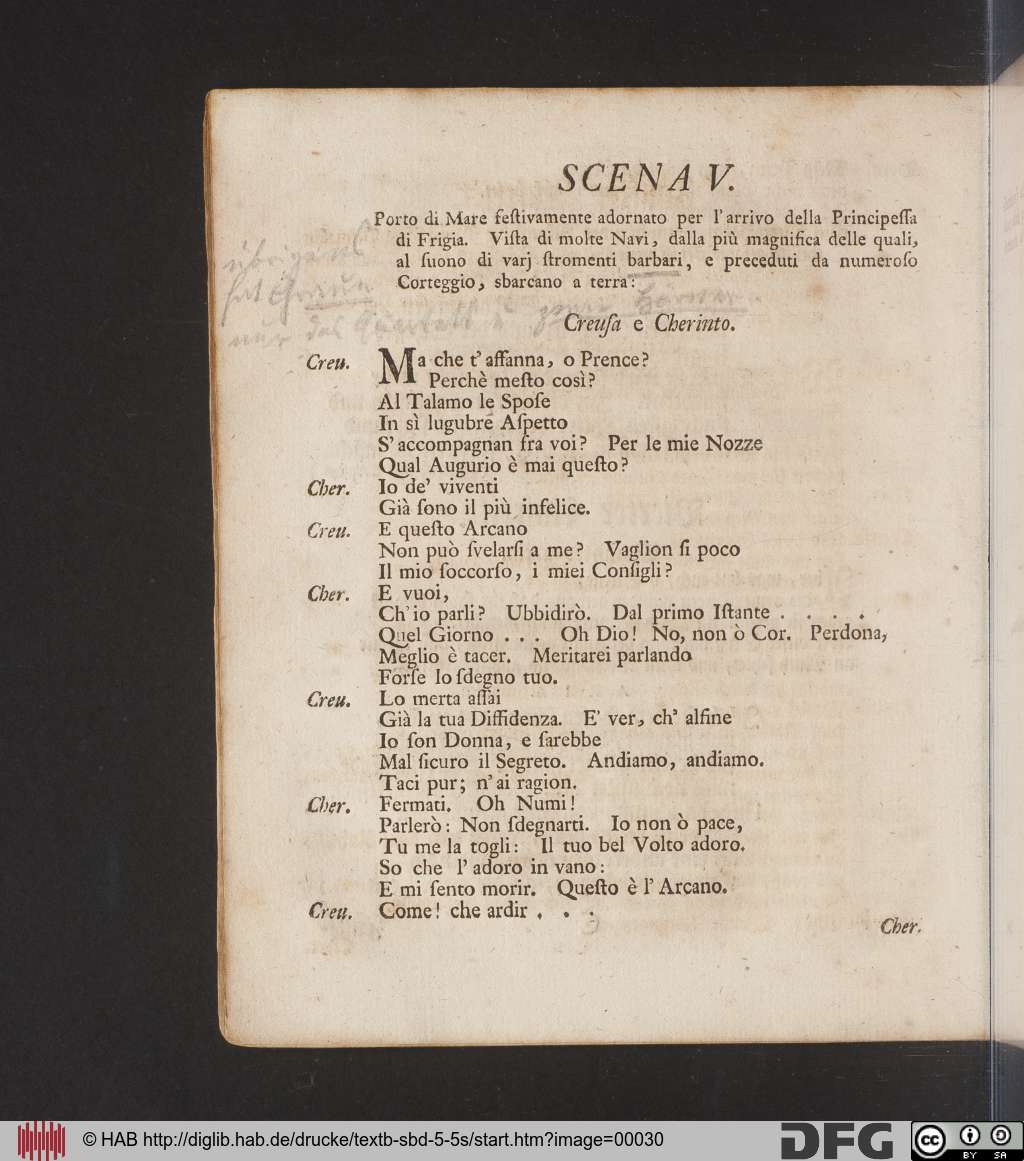 SCENA V.
Porto di Mare feſtivamente adornato per l'arrivo della Principeſſa
di Frigia. Viſta di molte Navi, dalla più magnifica delle quali,
al ſuono di varj ſtromenti barbari, e preceduti da numeroſo
Corteggio, sbarcano a terra:
übrigens
hat Graun
nur das Quartett u. zwei Hörner
Creuſa e Cherinto.
Creu. Ma che t'affanna, o Prence?
Perchè meſto così?
Al Talamo le Spoſe
In sì lugubre Aſpetto
S'accompagnan fra voi? Per le mie Nozze
Qual Augurio è mai queſto?
Cher. Io de' viventi
Già ſono il più infelice.
Creu. E queſto Arcano
Non può ſvelarſi a me? Vaglion ſi poco
Il mio ſoccorſo, i miei Conſigli?
Cher. E vuoi,
Ch'io parli? Ubbidirò. Dal primo Iſtante . . . .
Quel Giorno . . . Oh Dio! No, non ò Cor. Perdona,
Meglio è tacer. Meritarei parlando
Forſe lo ſdegno tuo.
Creu. Lo merta aſſai
Già la tua Diffidenza. E' ver, ch' alfine
Io ſon Donna, e ſarebbe
Mal ſicuro il Segreto. Andiamo, andiamo.
Taci pur; n'ai ragion.
Cher. Fermati. Oh Numi!
Parlerò: Non ſdegnarti. Io non ò pace,
Tu me la togli: Il tuo bel Volto adoro.
So che l'adoro in vano:
E mi ſento morir. Queſto è l'Arcano.
Creu. Come! che ardir . . .
Cher.
© HAB http://diglib.hab.de/drucke/textb-sbd-5-5s/start.htm?image=00030
DFG
cc
BY SA